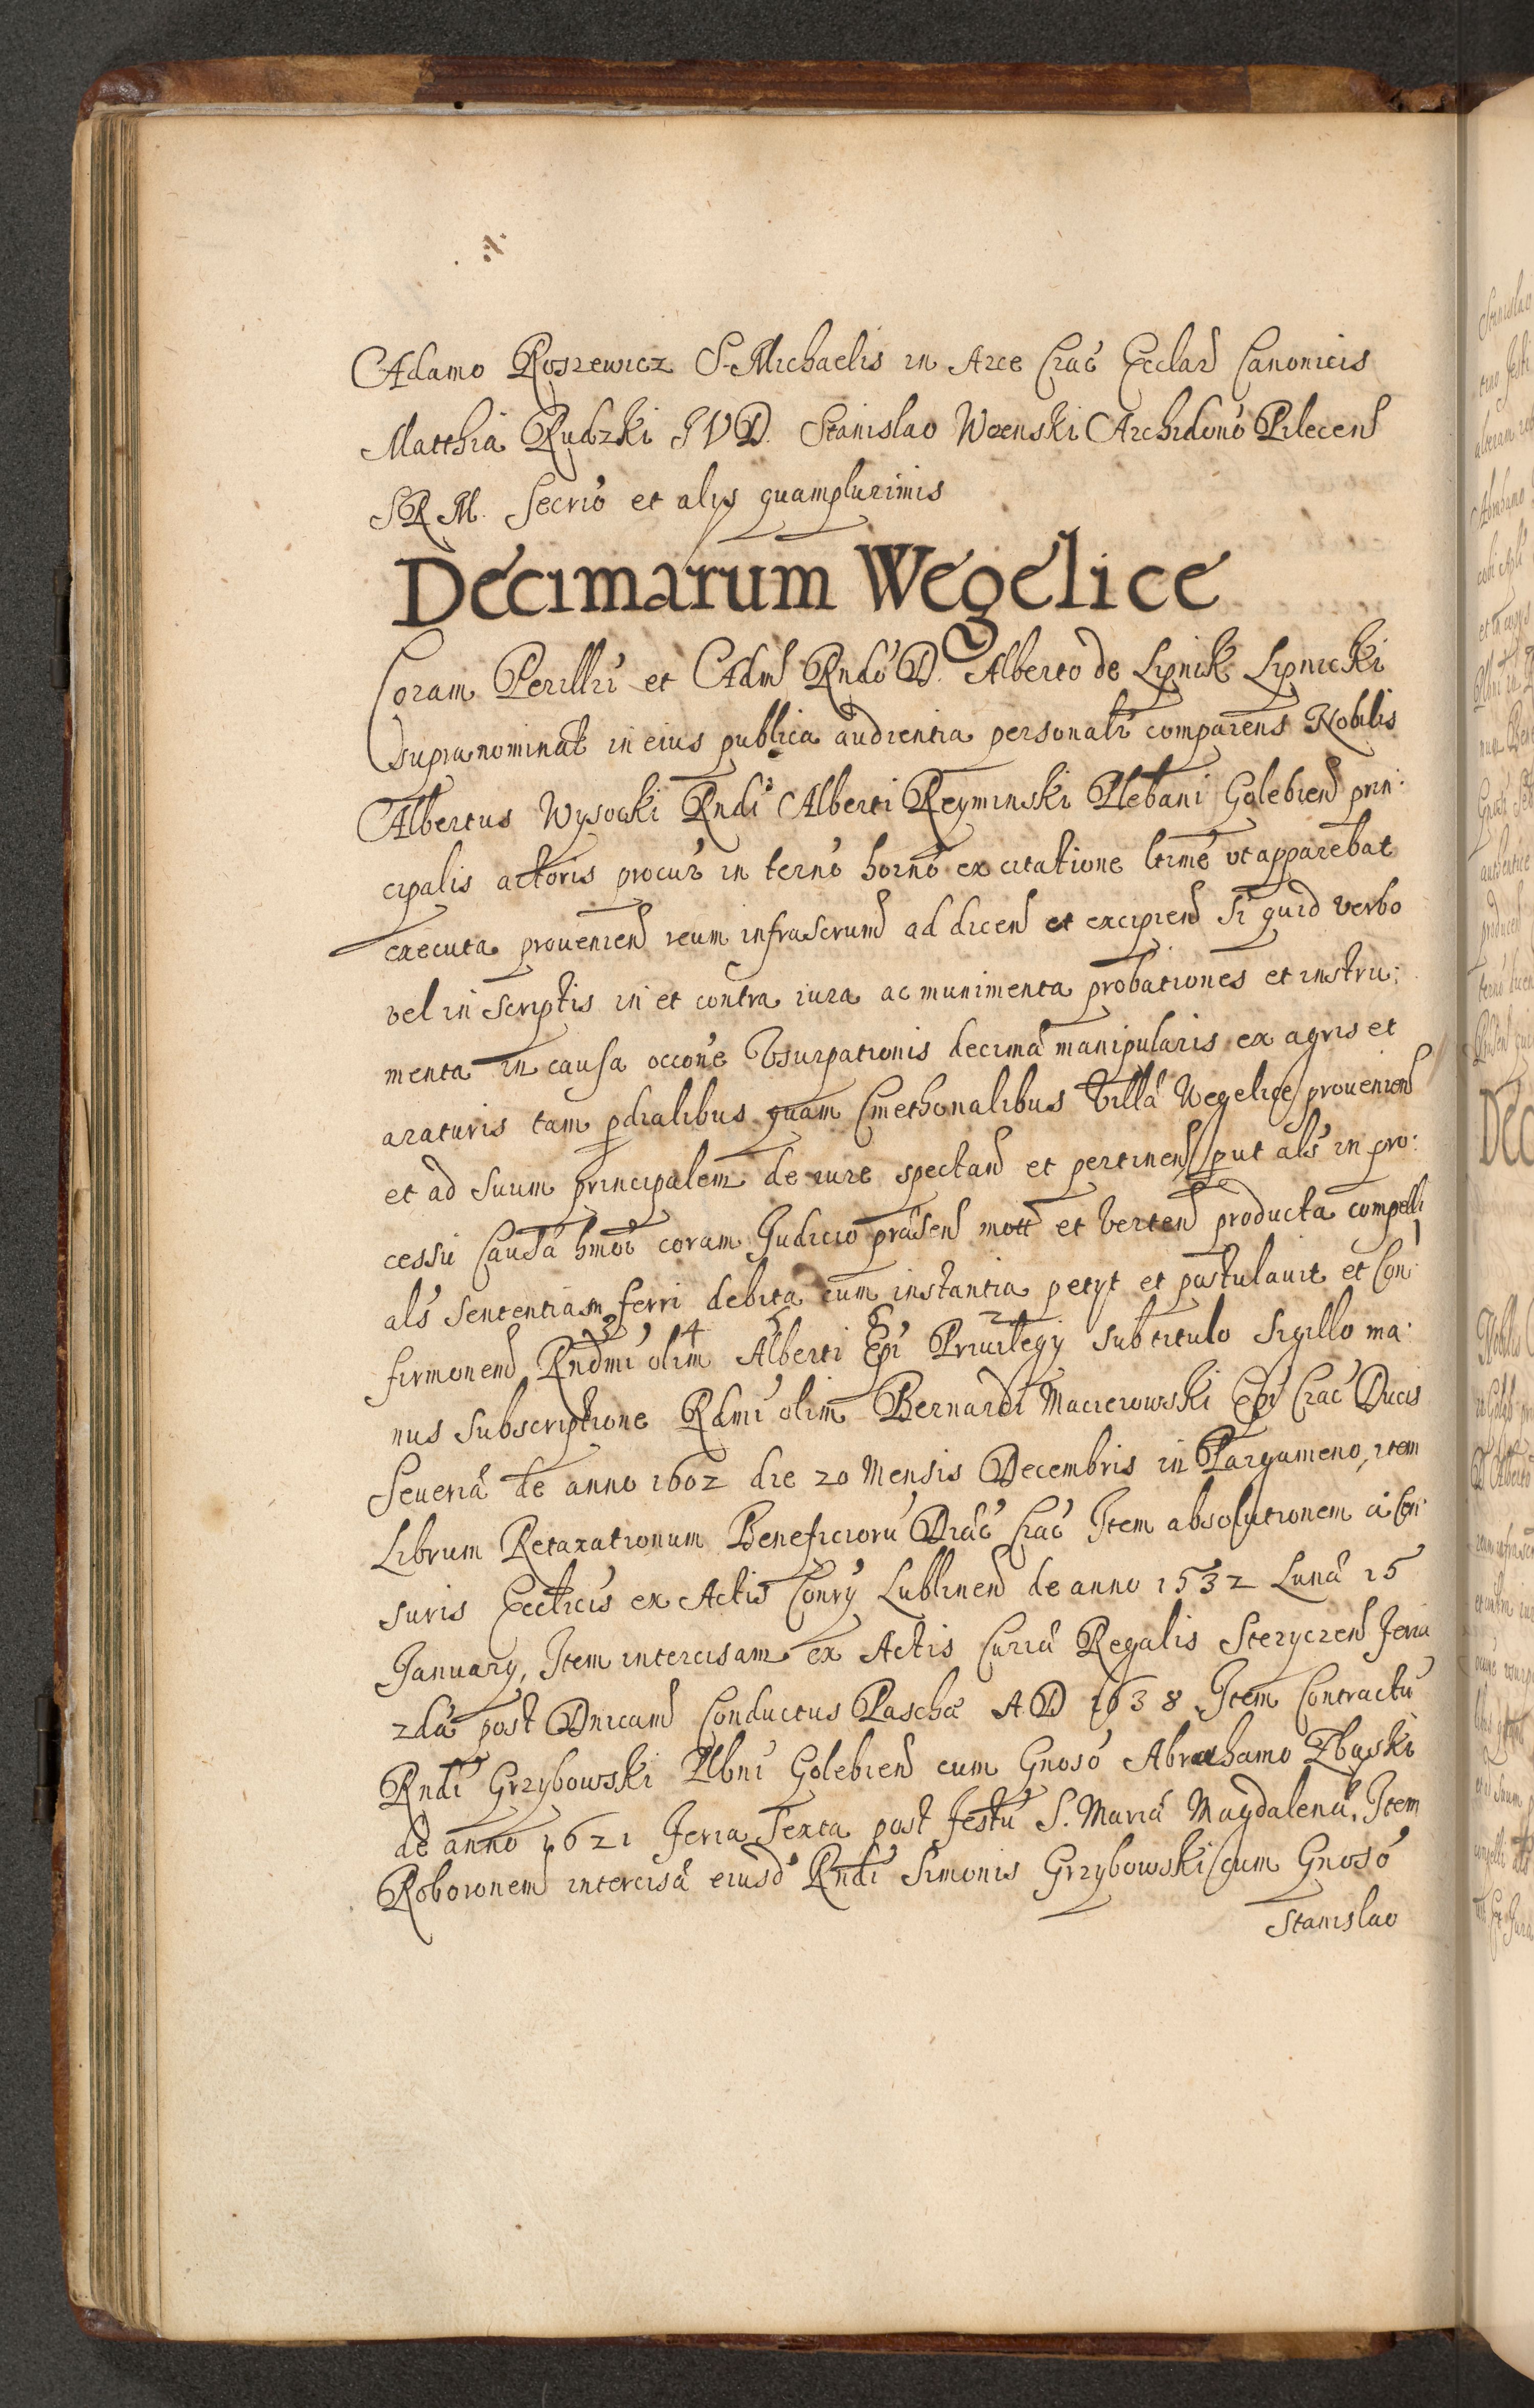 Adamo Roszewicz S. Michaelis in Arce Crac̃ Ecclarͩ Canonicis
Matthia Rudzki I V D. Stanislao Wrenski Archidonõ Pilecenͩ
S R M. Secriõ et alijs quamplurimis
Decimarum Wegelice
Coram Perillri et Admͩ Rndo D. Alberto de Lipnik Lipnicki
supranominat in eius publica audientia personalr comparens Nobilis
Albertus Wysocki Rndi Alberti Reyminski Plebani Golebienͩ prin:
cipalis actoris procur in termo horno ex citatione ltime ut apparebat
executa provenienͩ reum infrascrumͩ ad dicenͩ et excipienͩ si quid verbo
vel in scriptis in et contra iura ac munimenta probationes et instru:
menta in causa occone Vsurpationis decimâ manipularis ex agris et
araturis tam pdialibus quam Cmethonalibus Villâ Wegelice provenienͩ
et ad suum principalem de iure spectanͩ et pertinenͩ put als in pro:
cessu Causâ hmoi coram Judicio prâsenͩ mott et vertenͩ producta compelli
als sententiam ferri debita cum instantia petyt et postulavit et Con:
firmonemͩ Rndmi olim Alberti Epi Privilegij sub titulo sigillo ma:
3 4 5 6 2 1
nus subscriptione Rdmi olim Bernardi Macieiowski Epi Crac Ducis
Severiâ de anno 1602 die 20 Mensis Decembris in Pargameno, item
Librum Retaxationum Beneficiorũ Diâc Crac Item absolutionem â Cen:
suris Ecclicis ex Actis Conrij Lublinenͩ de anno 1532 Lunâ 15
January, Item intercisam ex Actis Curiâ Regalis Sterzycenͩ Feria
2dâ post Dnicamͩ Conductus Paschæ A. D 1638 Item Contractũ
Rndi Grzybowski Plbni Golebienͩ cum Gnoso Abrahamo Zbąski
de anno 1621 Feria Sexta post Festũ S. Mariâ Magdalenâ, Item
Roboronemͩ intercisâ eiusd Rndi Simonis Grzybowski cum Gnoso
Stanislao